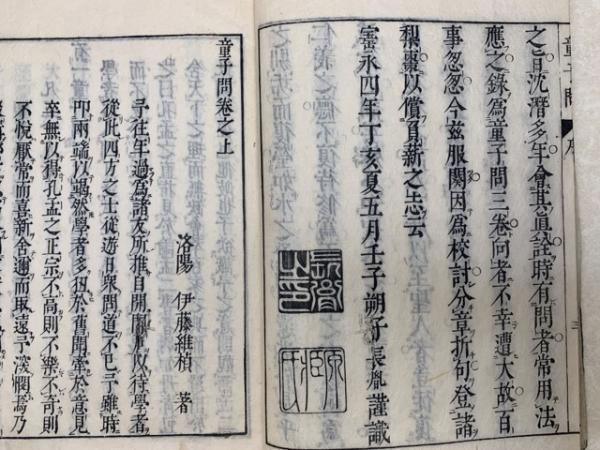 童子問 序
之旨沈潛多年會其眞詮時有問者常用法
應之錄爲童子問三卷向者不幸遭大故百
事忽忽今茲服闋因爲校討分章折句登諸
棃棗以償負薪之志云
寳永四年丁亥夏五月壬子朔子長胤謹識
長胤之印
童子問卷之上
洛陽 伊藤維楨 著
予往年過爲諸友所推自開門戶以待學者
從此四方之士從遊日衆問道不已予雖時
叩兩端以竭然學者多狃於舊聞牽於意見
卒無以得孔孟之正宗不高則不樂不奇則
不悅厭常而喜新舍邇而取遠予深憫焉乃